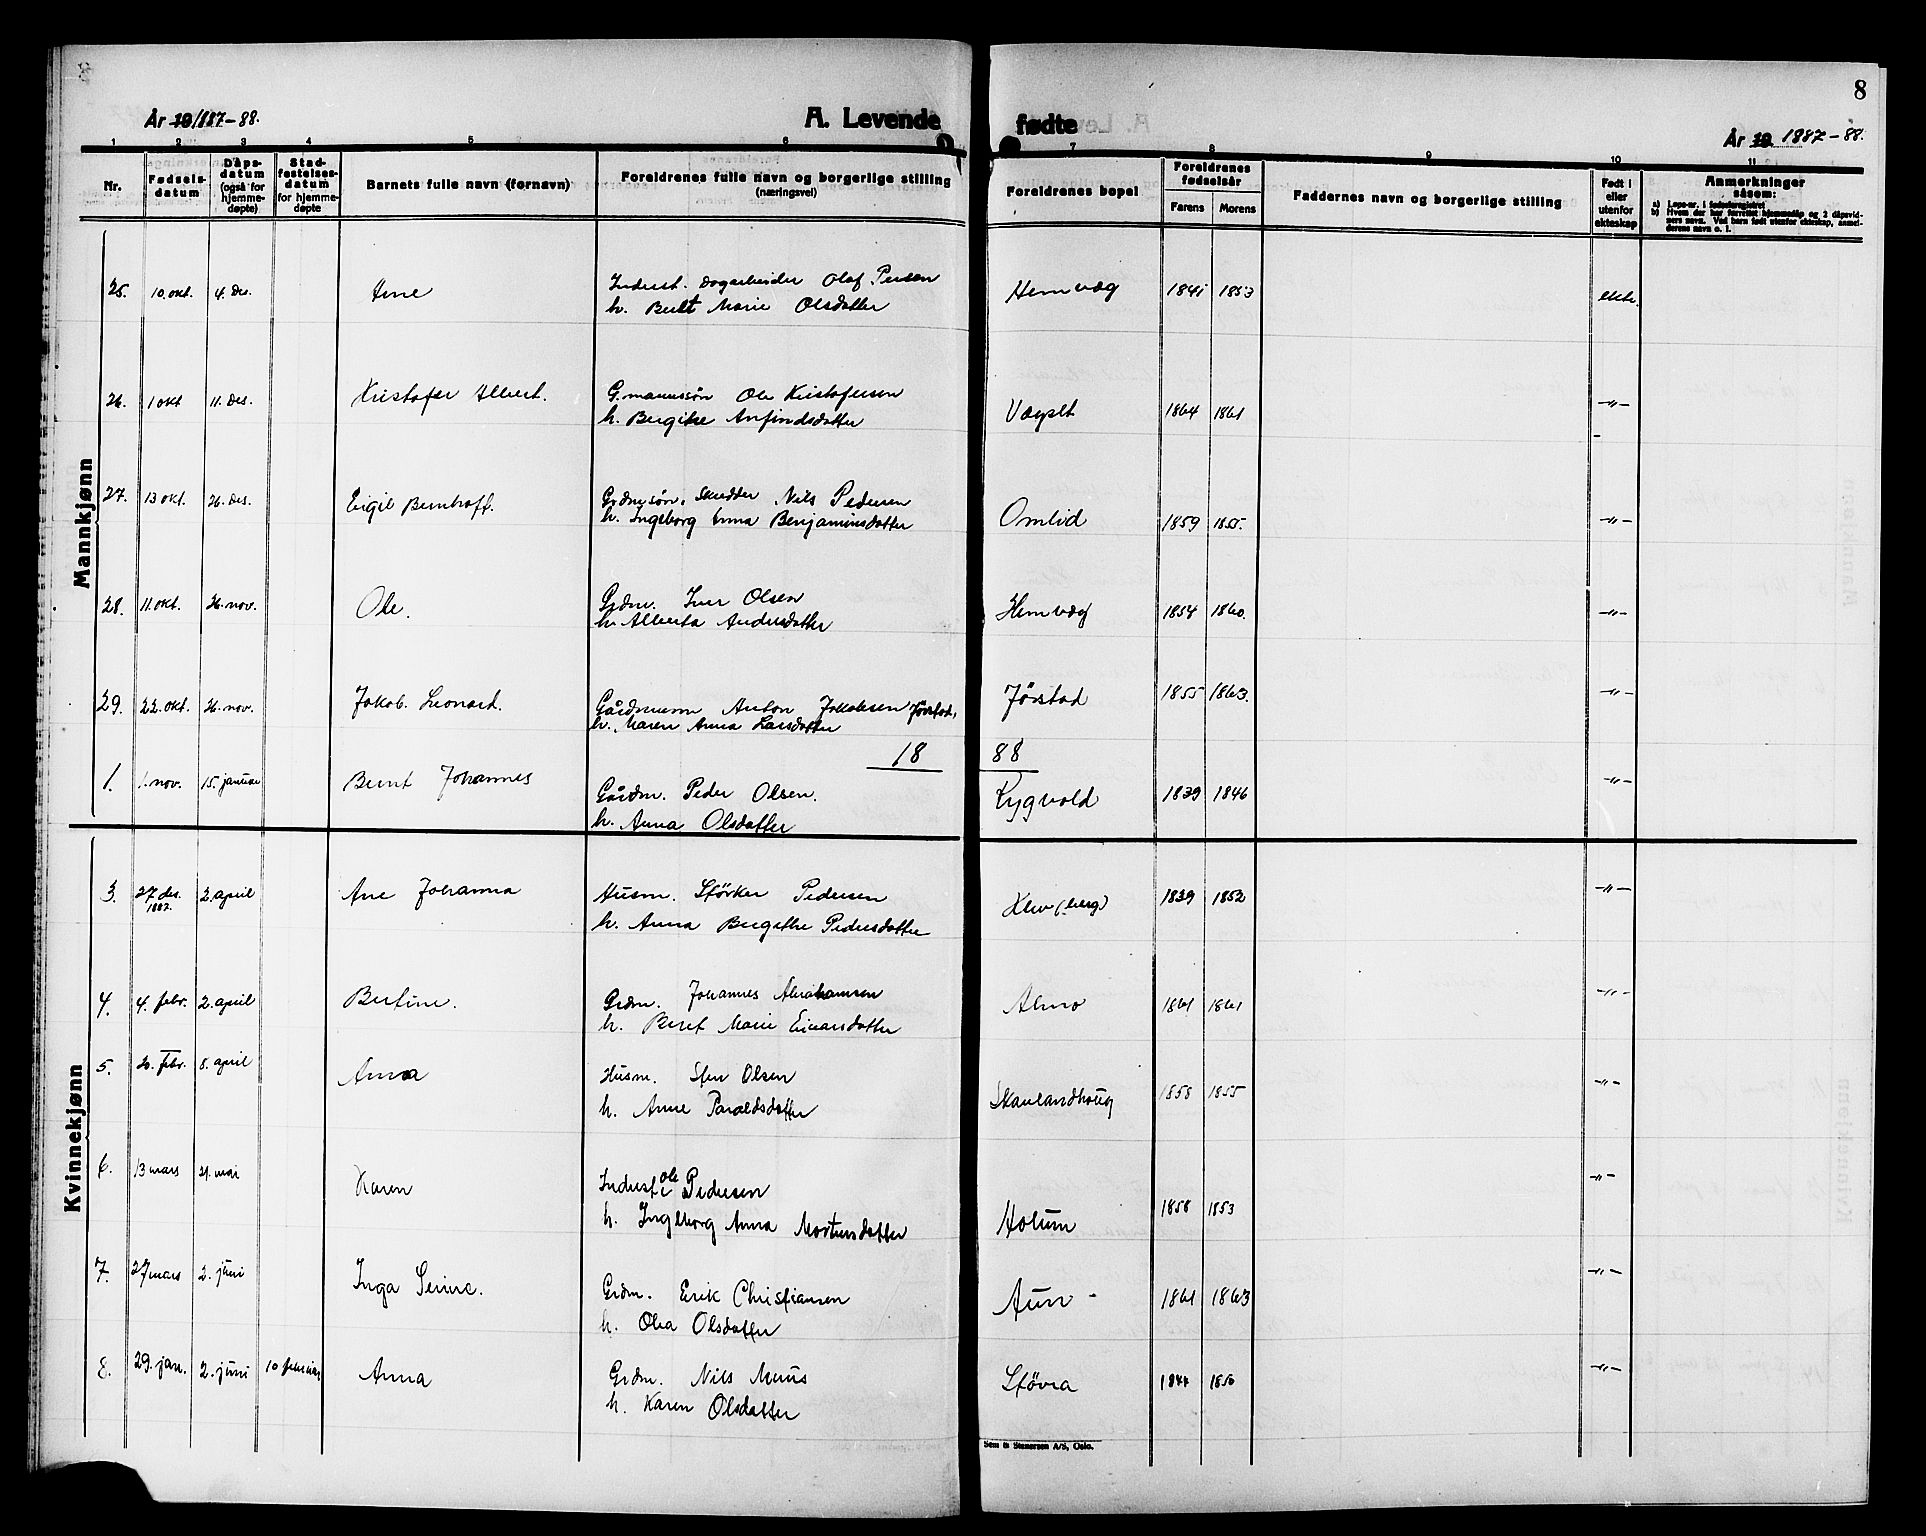 8
År 19/1887-88.
A. Levende fødte
År 19 1887-88.
1 2 3 4 5 6 7 8 9 10 11
Nr.
Fødsels-datum
Dåps-datum (også for hjemme-døpte)
Stad-festelses-datum for hjemme-døpte
Barnets fulle navn (fornavn)
Foreldrenes fulle navn og borgerlige stilling (næringsvei)
Foreldrenes bopel
Foreldrenes fødselsår
Farens Morens
Faddernes navn og borgerlige stilling
Født i eller utenfor ekteskap
Anmerkninger såsom:
a) Løpe-nr. i fødselsregistret
b) Hvem der har forrettet hjemmedåp og 2 dåpsvidners navn. Ved barn født utenfor ekteskap, anmelderens navn o. l.
Mannkjønn
25. 10. okt. 4. des. Arne Inderst. Dagarbeider Olaf Persen Hemvæg 1841 1853 ekte.
h. Berit Marie Olsdatter
26. 1 okt 11. des. Kristofer Albert. G.mannssøn Ole Kristofersen Vægslt 1864 1861 -"-
h. Bergitte Anfindsdatter
27. 13 okt. 26. des. Eigil Bernhoff. Grdm.søn. Skredder Nils Pedersen Omlid 1859 1855. -"-
h. Ingeborg Anna Benjaminsdatter
28. 11. okt. 26. nov. Ole. Grdm. Iver Olsen Hemvæg 1854 1860. -"-
h. Alberta Andersdatter
29. 22. okt. 26. nov. Jakob Leonard. Gårdmann Anton Jakobsen Jørstad, Jørstad 1855 1863. -"-
h. Maren Anna Larsdatter
18 88
1. 1. nov. 15. januar Bernt Johannes Gårdm. Peder Olsen. Rygvold 1839 1846 -"-
h. Anna Olsdatter
Kvinnekjønn
3. 27 des. 1887. 2. april Ane Johanna Husm. Størker Pedersen Klev (berg) 1839 1852 -"-
h. Anna Bergithe Pedersdatter
4. 4. febr. 2. april Bertine. Grdm. Johannes Abrahamsen Almo 1861 1861 -"-
h. Beret Marie Einarsdatter
5. 20. febr. 8. april Anna Husm. Sten Olsen Skanlandhoug 1858 1855 -"-
h. Anne Paraldsdatter
6. 13 mars 21. mai Karen Inderst Ole Pedersen Holum 1858 1853 -"-
h. Ingeborg Anna Mortensdatter
7. 27 mars 2. juni Inga Serine. Grdm. Erik Christiansen Aun 1861 1863 -"-
h. Olea Olsdatter
8. 29. jan. 2. juni 10 februar Anna Grdm. Nils Muus Støvra 1844 1850 -"-
h. Karen Olsdatter
Sem & Stenersen A/S, Oslo.